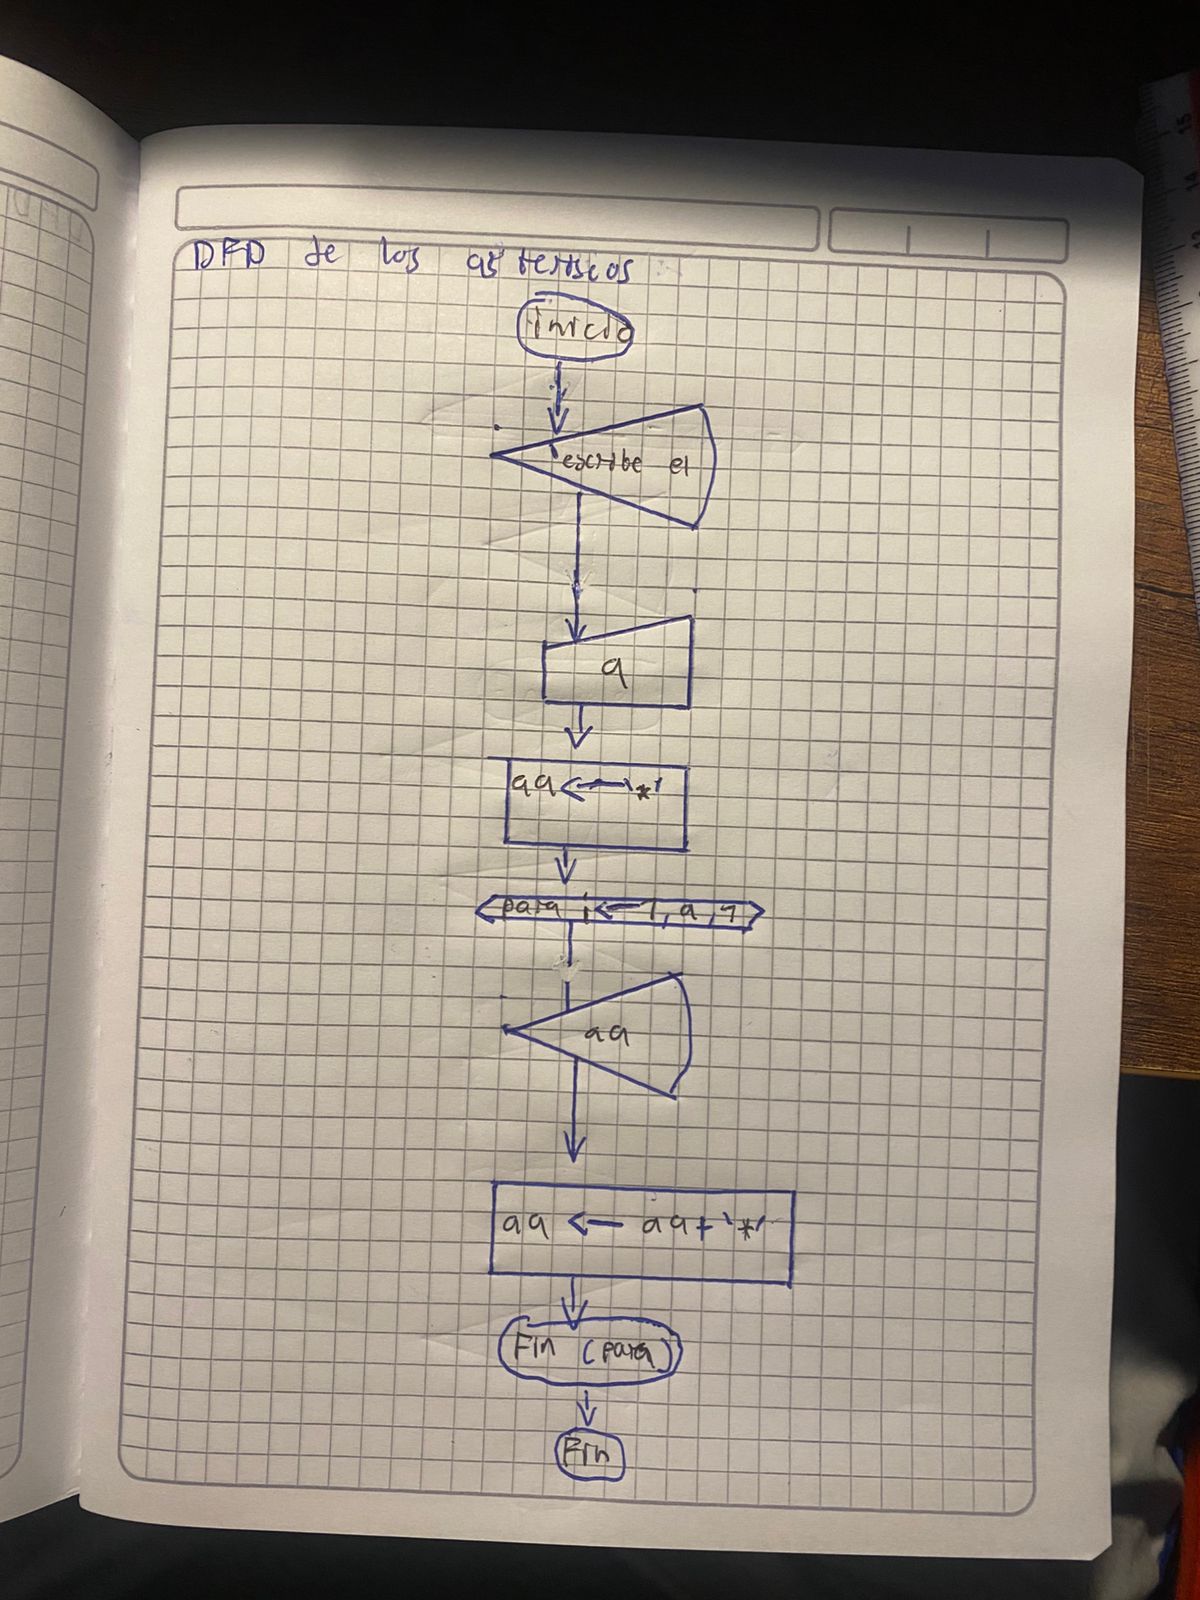 DFD de los asteriscos
inicio
'escribe el
a
aa ← '*'
para i ← 1, a, 1
aa
aa ← aa + '*'
Fin (para)
Fin